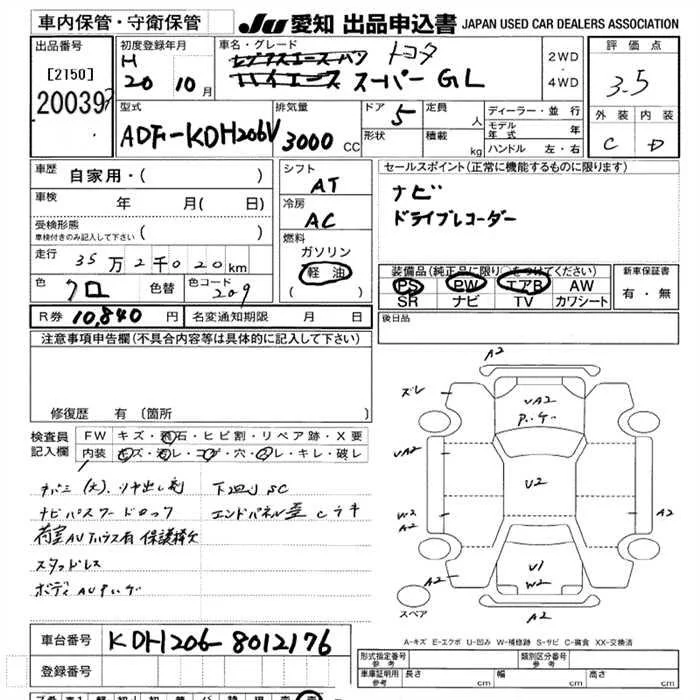 車内保管・守衛保管
JU 愛知 出品申込書 JAPAN USED CAR DEALERS ASSOCIATION
出品番号
[2150]
20039
初度登録年月
H
20 10月
車名・グレード
トヨタ
ハイエース スーパーGL
2WD
・
4WD
評価点
3.5
外装 内装
C D
型式
ADF-KDH206V
排気量
3000 CC
ドア 5
形状
定員 人
積載 kg
ディーラー・並行
モデル年式 年
ハンドル 左・右
車歴 自家用・( )
車検 年 月( 日)
受検形態
車検付きのみ記入して下さい ( )
走行 35万2千020km
色 クロ 色替 色コード 209
シフト
AT
冷房
AC
燃料
ガソリン
軽油
( )
セールスポイント(正常に機能するものに限ります)
ナビ
ドライブレコーダー
装備品(純正品に限り○をつけてください)
PS PW エアB AW
SR ナビ TV カワシート
新車保証書
有・無
R券 10,840 円 名変通知期限 月 日
後日品
注意事項申告欄(不具合内容等は具体的に記入して下さい)
修復歴 有(箇所
検査員記入欄
FW キズ・飛石・ヒビ割・リペア跡・X要
内装 キズ・汚レ・コゲ・穴・スレ・キレ・破レ
ツヤ出し剤 下廻りSC
ナビパスワードロック エンドパネル
スタッドレス
ボディ
A2
ズレ
UA2
UA2
U2
W2
A2
A2
U1
W2
A2
A2
スペア
A-キズ E-エクボ U-凹み W-補修跡 S-サビ C-腐食 XX-交換済
車台番号 KDH206-8012176
登録番号
形式指定番号
参考
類別区分番号
参考
車庫証明用
参考
長さ cm 幅 cm 高さ cm